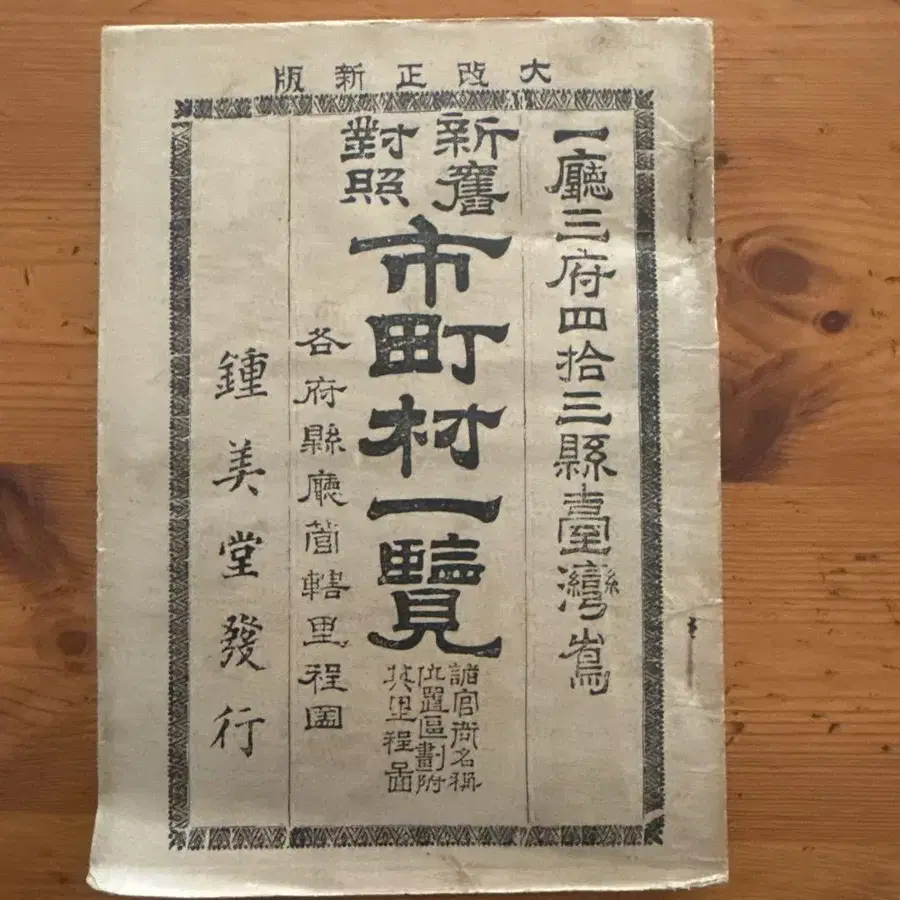 大改正新版
一廳三府四拾三縣臺灣嶌
新舊
對照
市町村一覽
諸官衙名稱
位置區劃附
其里程圖
各府縣廳管轄里程圖
鍾美堂發行